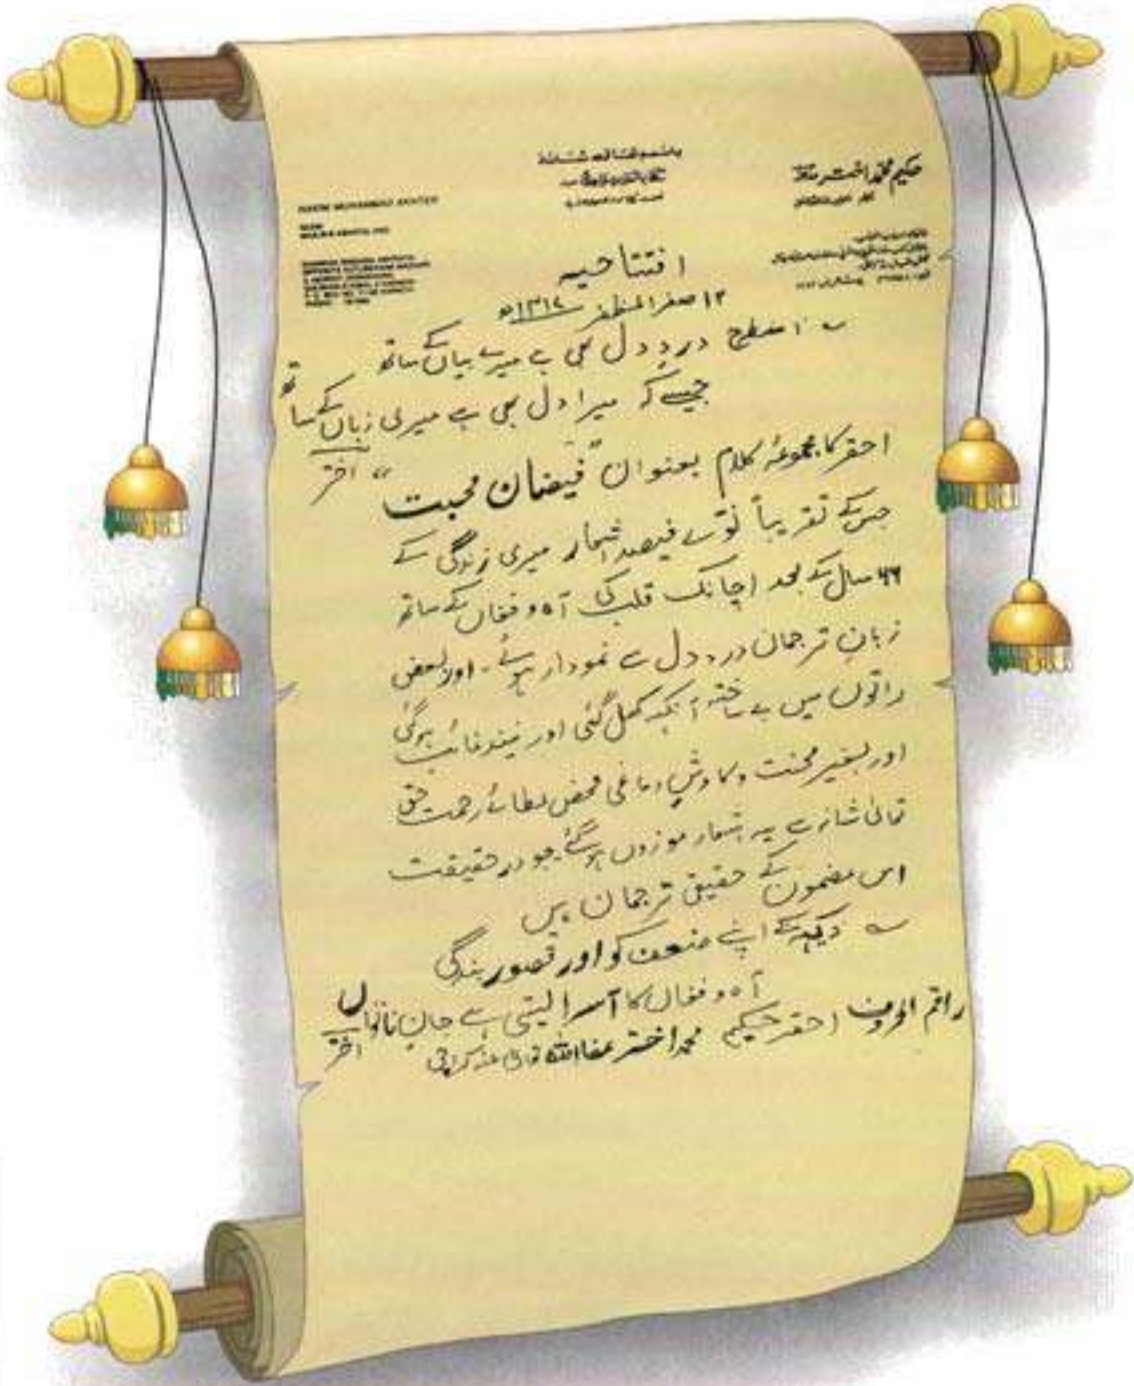 باسمہ تعالیٰ شانہ
حکیم محمد اختر
HAKIM MUHAMMAD AKHTER
افتتاحیہ
۱۲ صفر المظفر ۱۴۱۴ھ
اسطرح درد دل بھی ہے میرے بیاں کے ساتھ
جیسے کہ میرا دل بھی ہے میری زباں کے ساتھ
اختر
احقر کا مجموعۂ کلام بعنوان "فیضان محبت"
جس کے تقریباً نوّے فیصد اشعار میری زندگی کے
۶۶ سال کے بعد اچانک قلب کی آہ و فغاں کے ساتھ
زبان ترجمان درد دل سے نمودار ہوئے۔ اور بعض
راتوں میں بے ساختہ آنکھ کھل گئی اور نیند غائب ہوگئی
اور بغیر محنت و کاوش دماغی محض عطائے رحمت حق
تعالیٰ شانہ سے یہ اشعار موزوں ہوگئے جو در حقیقت
اس مضمون کے حقیقی ترجمان ہیں
دیکھ کے اپنے ضعف کو اور قصور بندگی
آہ و فغاں کا آسرا لیتی ہے جان ناتواں
اختر
راقم الحروف احقر حکیم محمد اختر عفا اللہ تعالیٰ عنہ کراچی